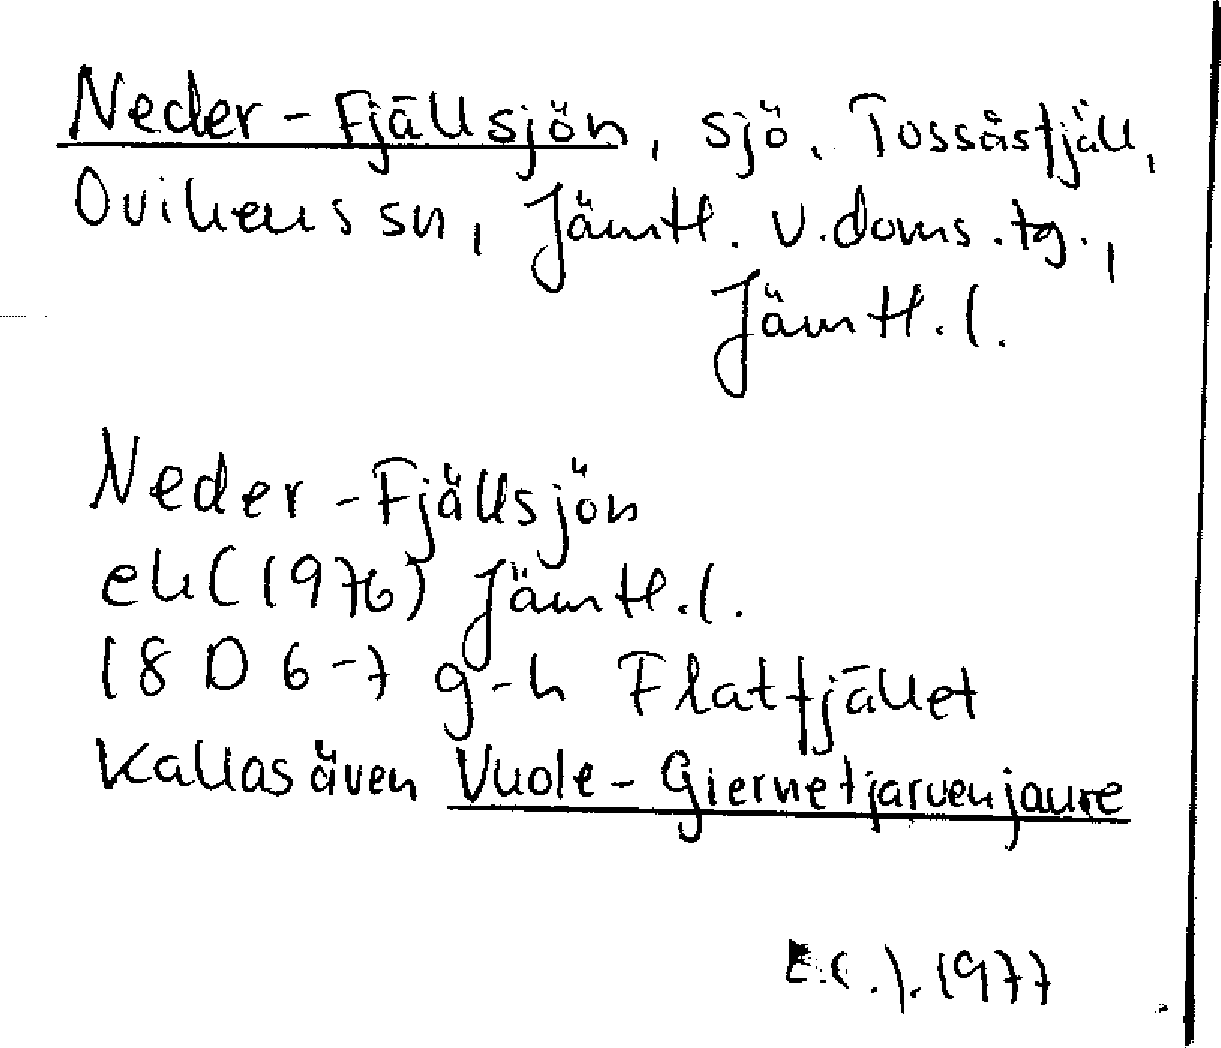 Neder-Fjällsjön, sjö. Tossåsfjäll,
Ovikens sn, Jämtl. v. doms. tg.,
Jämtl. l.
Neder-Fjällsjön
ek (1976) Jämtl. l.
18 D 6-7 g-h Flatfjället
Kallas även Vuole-Giernetjarvenjaure
1977